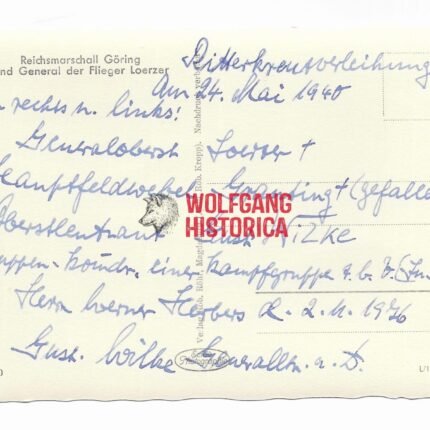 Reichsmarschall Göring
nd General der Flieger Loerzer
Ritterkreuzverleihung
Am 24. Mai 1940
n rechts n. links:
Generaloberst Loerzer †
Hauptfeldwebel † (gefalle
Oberstleutnant Gust. Wilke
ppen-Komdr. einer Kampfgruppe z. b. V.
Herrn Werner Herbers d. 2.11.1976
Gust. Wilke Generallt. a. D.
WOLFGANG
HISTORICA
Nachdruck verb
Photographie
0
L/1